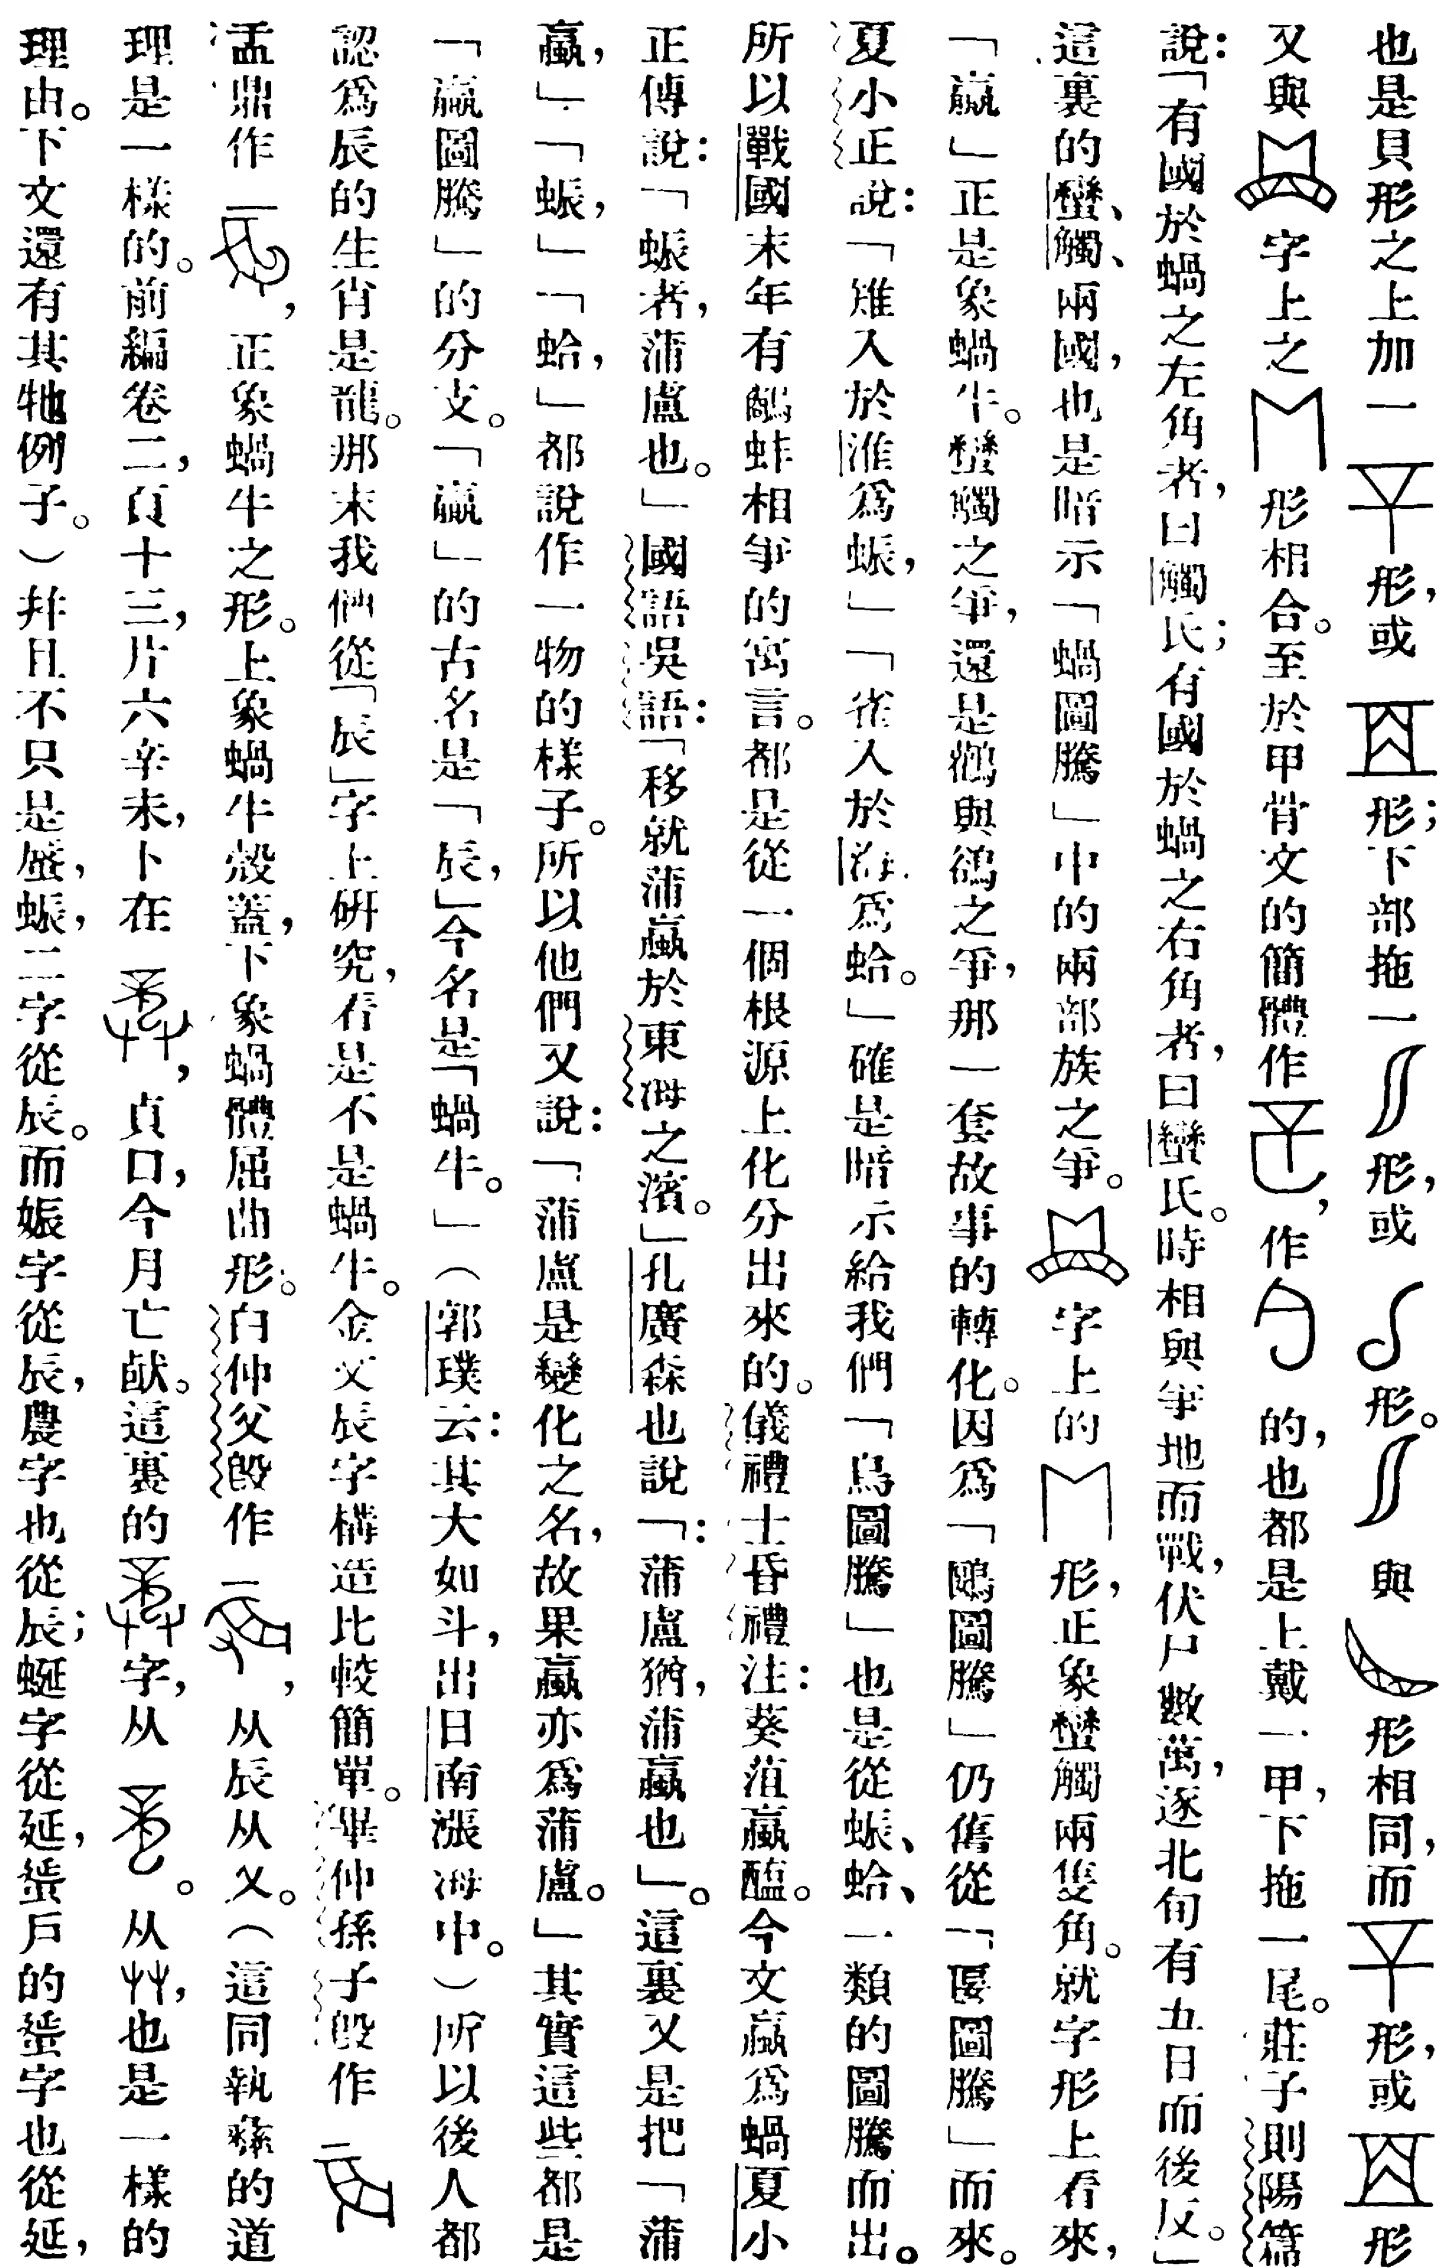 也是貝形之上加一形，或形；下部拖一形，或形。與形相同，而形，或形
又與字上之形相合。至於甲骨文的簡體作，作的，也都是上戴一甲，下拖一尾。莊子則陽篇
說：「有國於蝸之左角者，曰觸氏；有國於蝸之右角者，曰蠻氏。時相與爭地而戰，伏尸數萬，逐北旬有五日而後反。」
這裏的蠻、觸、兩國，也是暗示「蝸圖騰」中的兩部族之爭。字上的形，正象蠻觸兩隻角。就字形上看來，
「蠃」正是象蝸牛。蠻觸之爭，還是鷸與鷁之爭，那一套故事的轉化。因爲「鷗圖騰」仍舊從「匽圖騰」而來。
夏小正說：「雉入於淮爲蜄，」「雀入於海爲蛤。」確是暗示給我們「鳥圖騰」也是從蜄、蛤、一類的圖騰而出。
所以戰國末年有鷸蚌相爭的寓言。都是從一個根源上化分出來的。儀禮士昏禮注：葵菹蠃醢。今文蠃爲蝸夏小
正傳說：「蜄者，蒲盧也。」國語吳語：「移就蒲蠃於東海之濱。」孔廣森也說「：蒲盧猶，蒲蠃也」。這裏又是把「蒲
蠃，」「蜄，」「蛤，」都說作一物的樣子。所以他們又說：「蒲盧是變化之名，故果蠃亦爲蒲盧。」其實這些都是
「蠃圖騰」的分支。「蠃」的古名是「辰，」今名是「蝸牛。」（郭璞云：其大如斗，出日南漲海中。）所以後人都
認爲辰的生肖是龍。那末我們從「辰」字上研究，看是不是蝸牛。金文辰字構造比較簡單。畢仲孫子𣪘作
盂鼎作，正象蝸牛之形。上象蝸牛殼蓋，下象蝸體屈曲形。白仲父𣪘作，从辰从又。（這同執彝的道
理是一樣的。前編卷二，頁十三，片六辛未，卜在，貞口，今月亡𤞷。這裏的字，从。从艸，也是一樣的
理由。下文還有其牠例子。）并且不只是蜃，蜄，二字從辰。而娠字從辰，農字也從辰；蜒字從延，蜑戶的蜑字也從延，